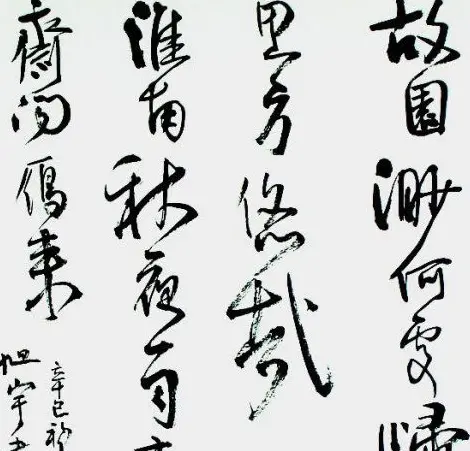 故園渺何處歸
思方悠哉
淮南秋夜雨
齋聞鴈來
辛巳